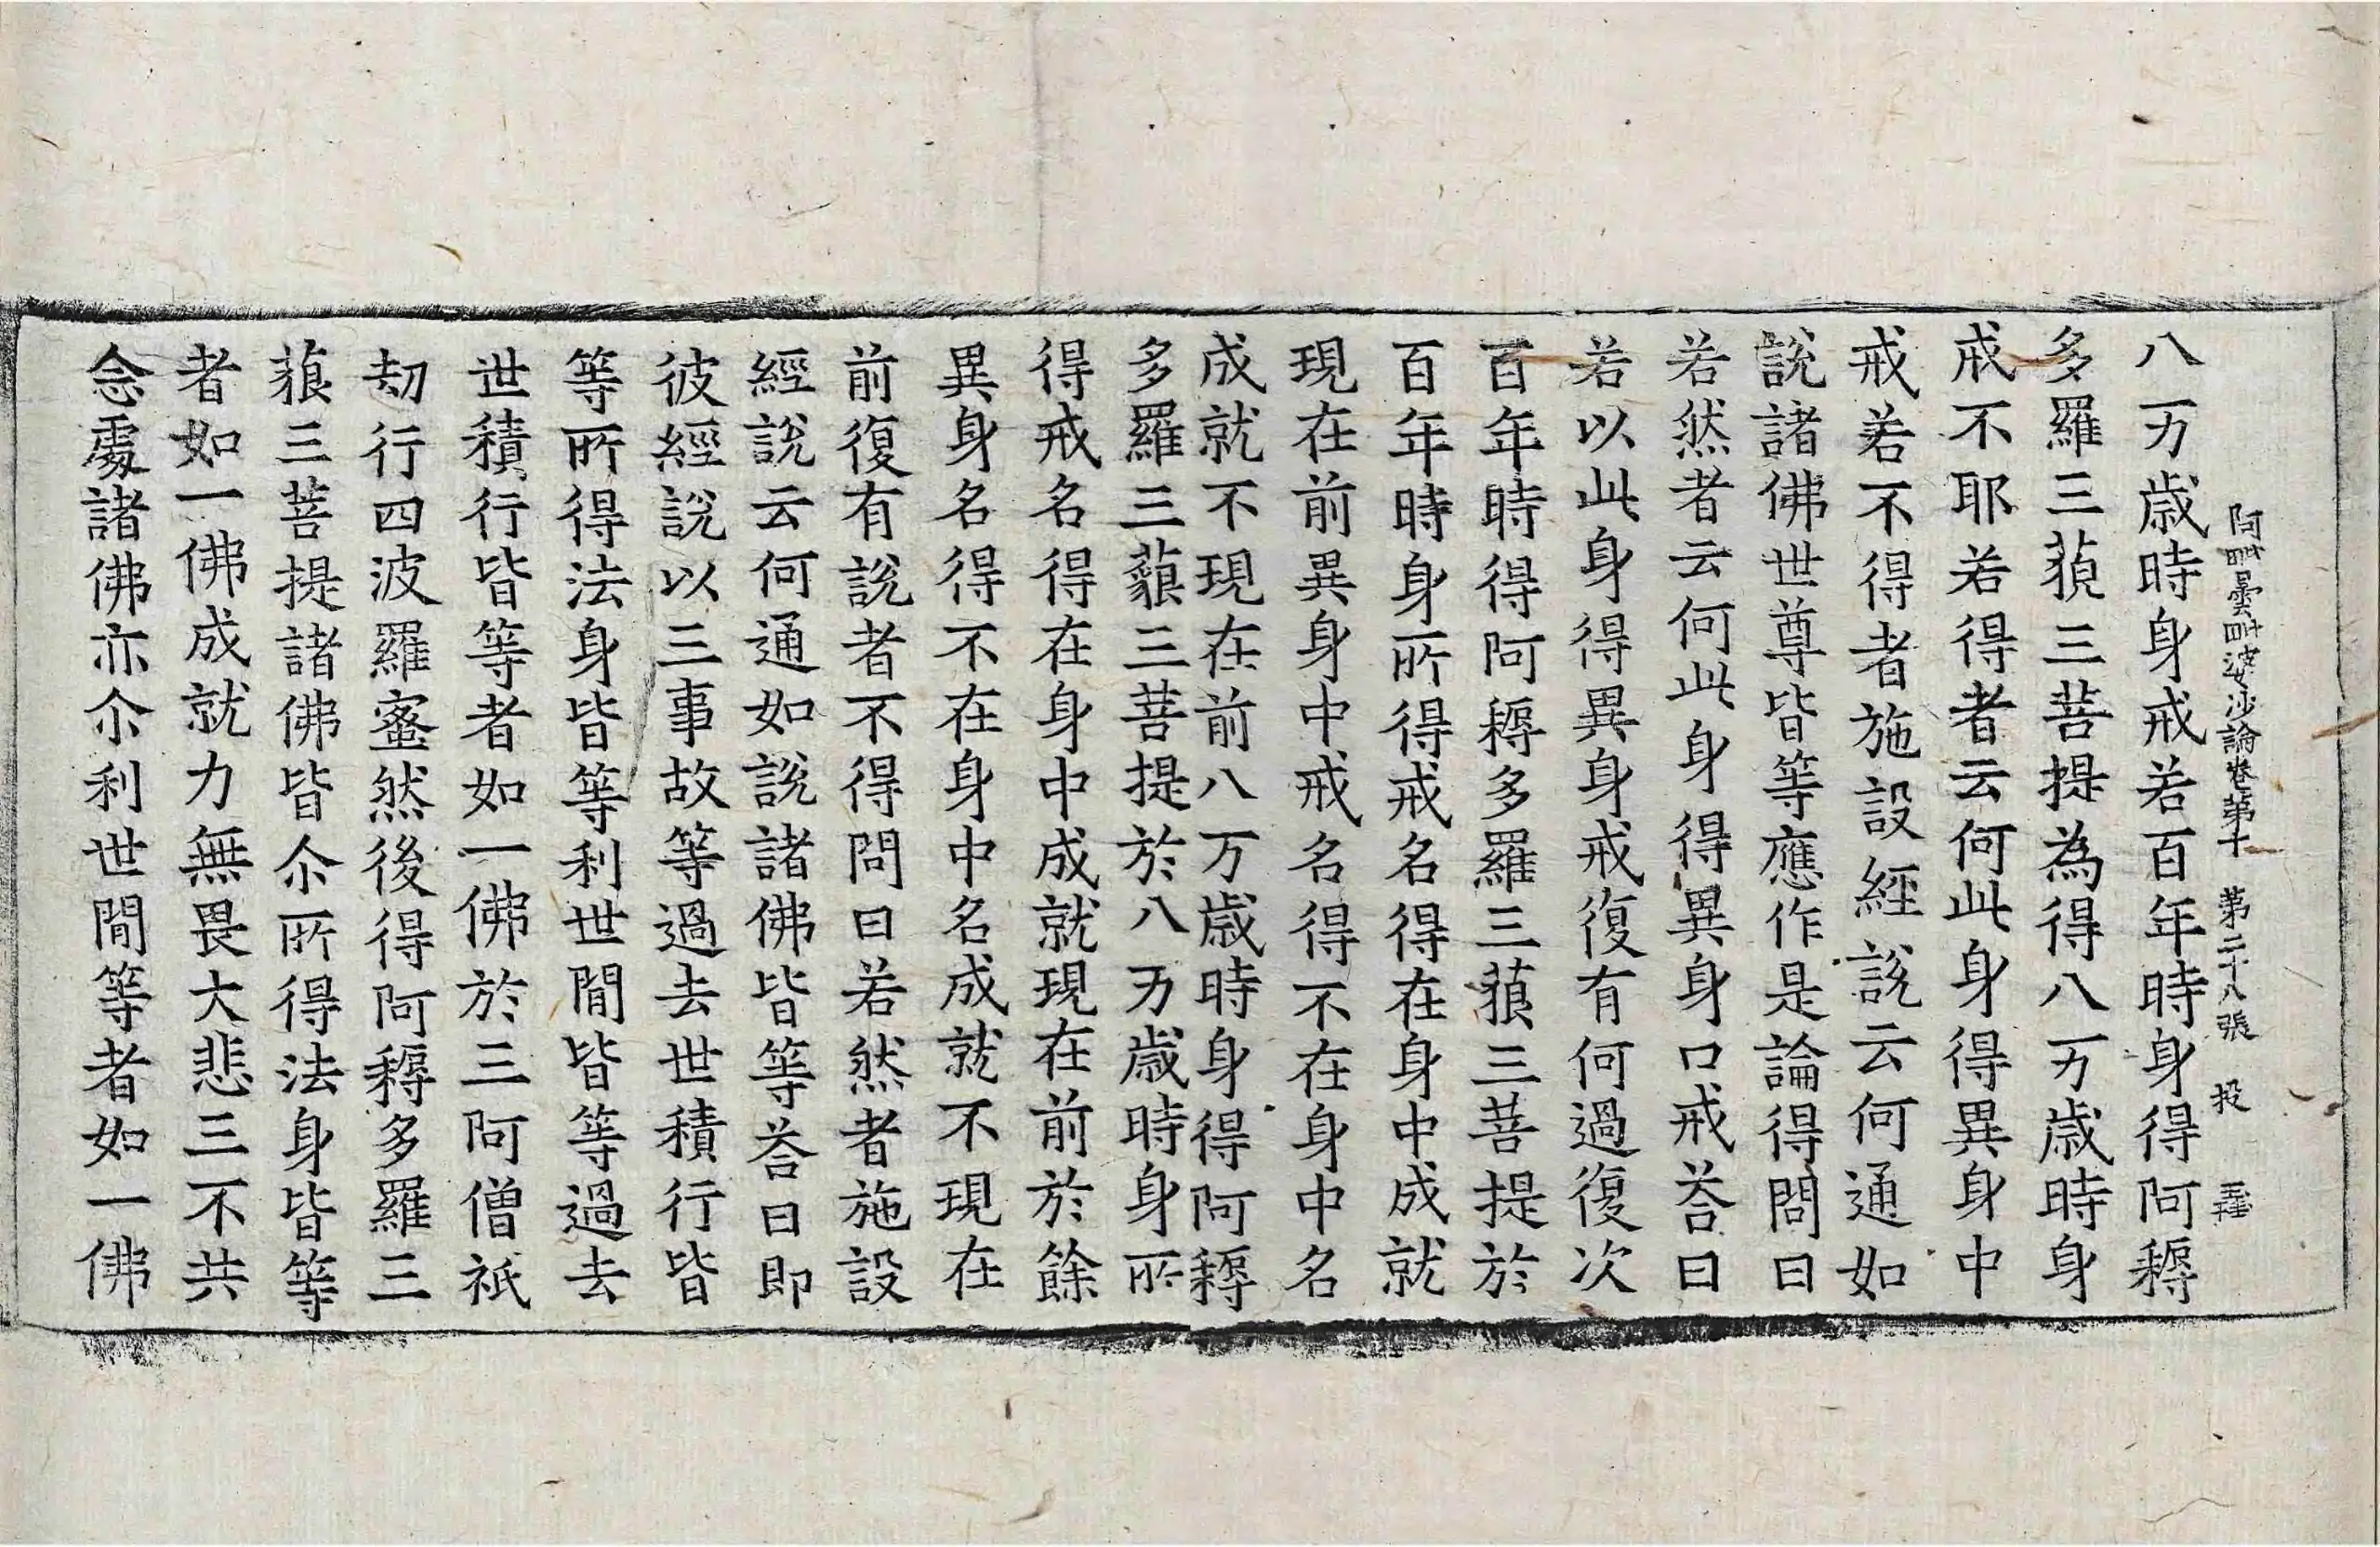 阿毗曇毗婆沙論卷第十　第二十八張　投
八万歳時身戒若百年時身得阿耨
多羅三藐三菩提為得八万歳時身
戒不耶若得者云何此身得異身中
戒若不得者施設經說云何通如
說諸佛世尊皆等應作是論得問曰
若然者云何此身得異身口戒荅曰
若以此身得異身戒復有何過復次
百年時得阿耨多羅三藐三菩提於
百年時身所得戒名得在身中成就
現在前異身中戒名得不在身中名
成就不現在前八万歳時身得阿耨
多羅三藐三菩提於八万歳時身所
得戒名得在身中成就現在前於餘
異身名得不在身中名成就不現在
前復有說者不得問曰若然者施設
經說云何通如說諸佛皆等荅曰即
彼經說以三事故等過去世積行皆
等所得法身皆等利世間皆等過去
世積行皆等者如一佛於三阿僧祇
劫行四波羅蜜然後得阿耨多羅三
藐三菩提諸佛皆尒所得法身皆等
者如一佛成就力無畏大悲三不共
念處諸佛亦尒利世間等者如一佛